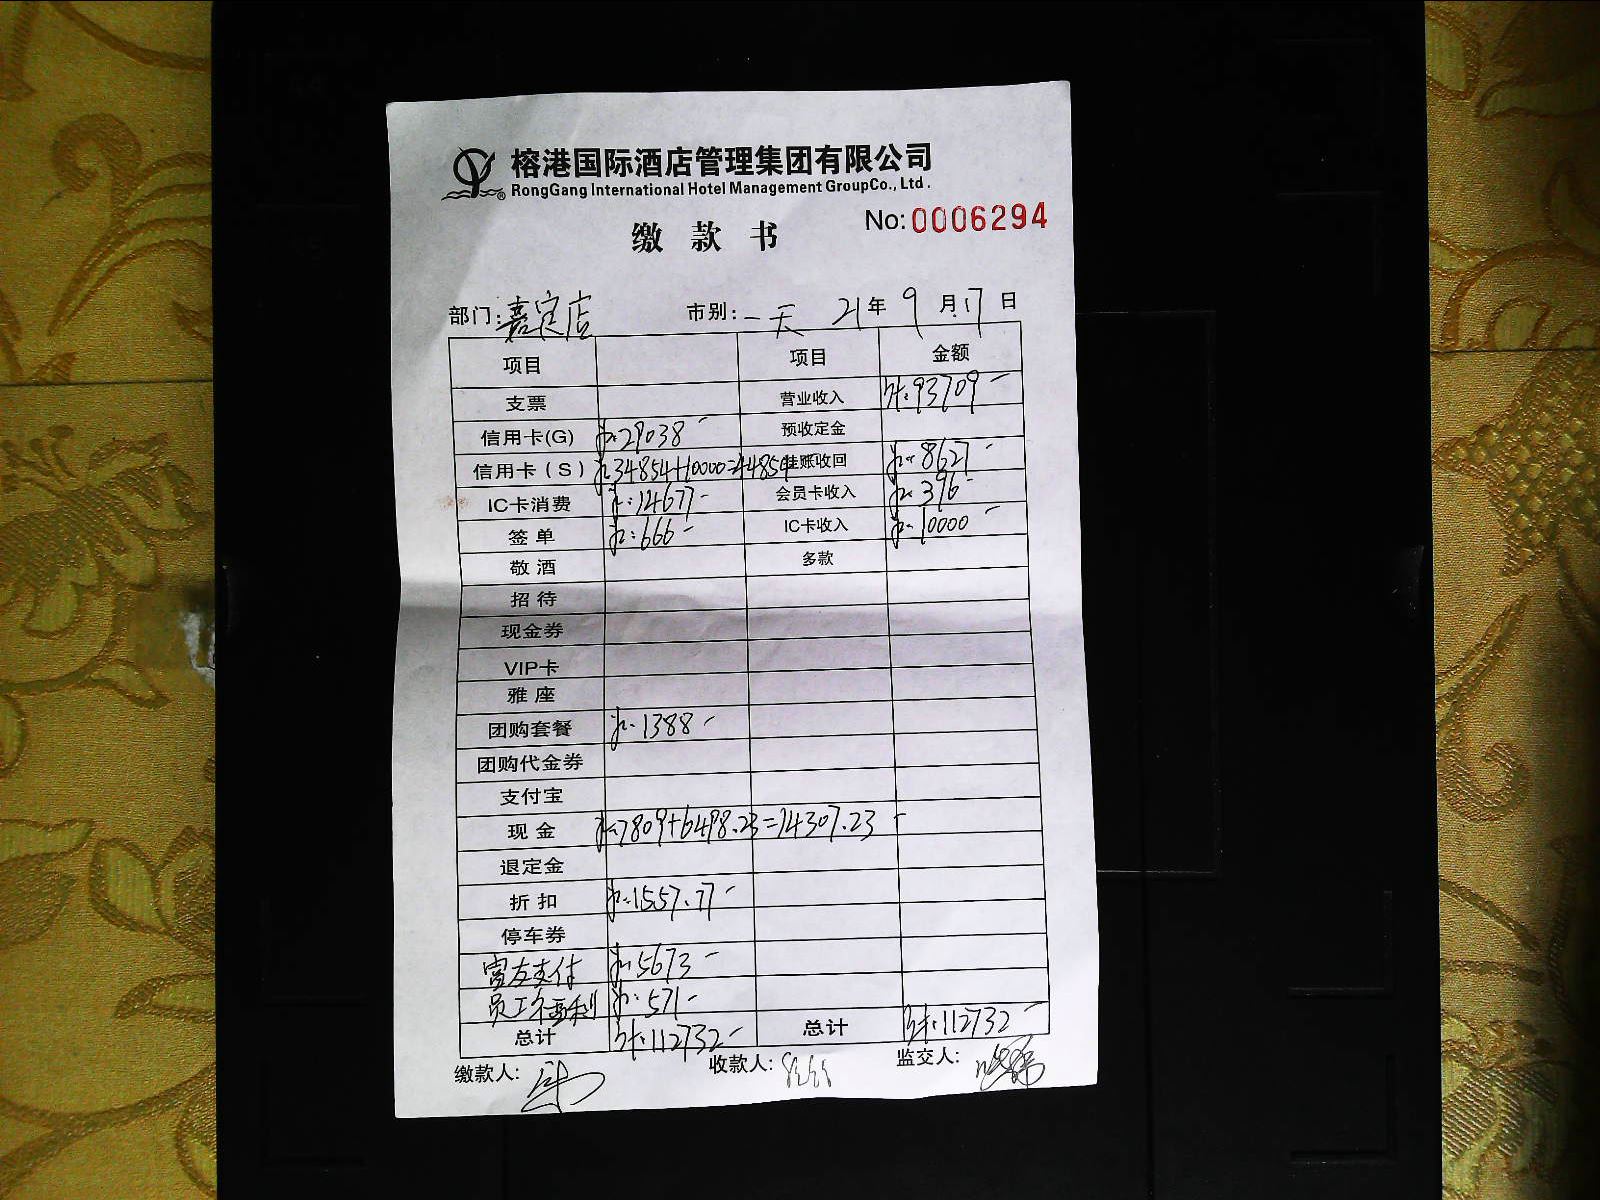 榕港国际酒店管理集团有限公司
RongGang International Hotel Management GroupCo., Ltd.
缴款书 No:0006294
部门:嘉宾店 市别:一天 21年9月17日
项目 项目 金额
支票 营业收入 93709-
信用卡(G) 29038- 预收定金
信用卡(S) 34854+10000=44854 挂账收回 8627-
IC卡消费 14677- 会员卡收入 396-
签单 666- IC卡收入 10000-
敬酒 多款
招待
现金券
VIP卡
雅座
团购套餐 1388-
团购代金券
支付宝
现金 7809+6498.23=14307.23-
退定金
折扣 1557.77-
停车券
富友支付 5673-
员工福利 571-
总计 112732- 总计 112732-
缴款人: 收款人: 监交人: